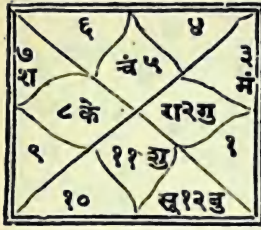 ६ ४
७ चं ५ ३
श मं
८ के रा२गु
९ ११ शु १
१० सू१२बु